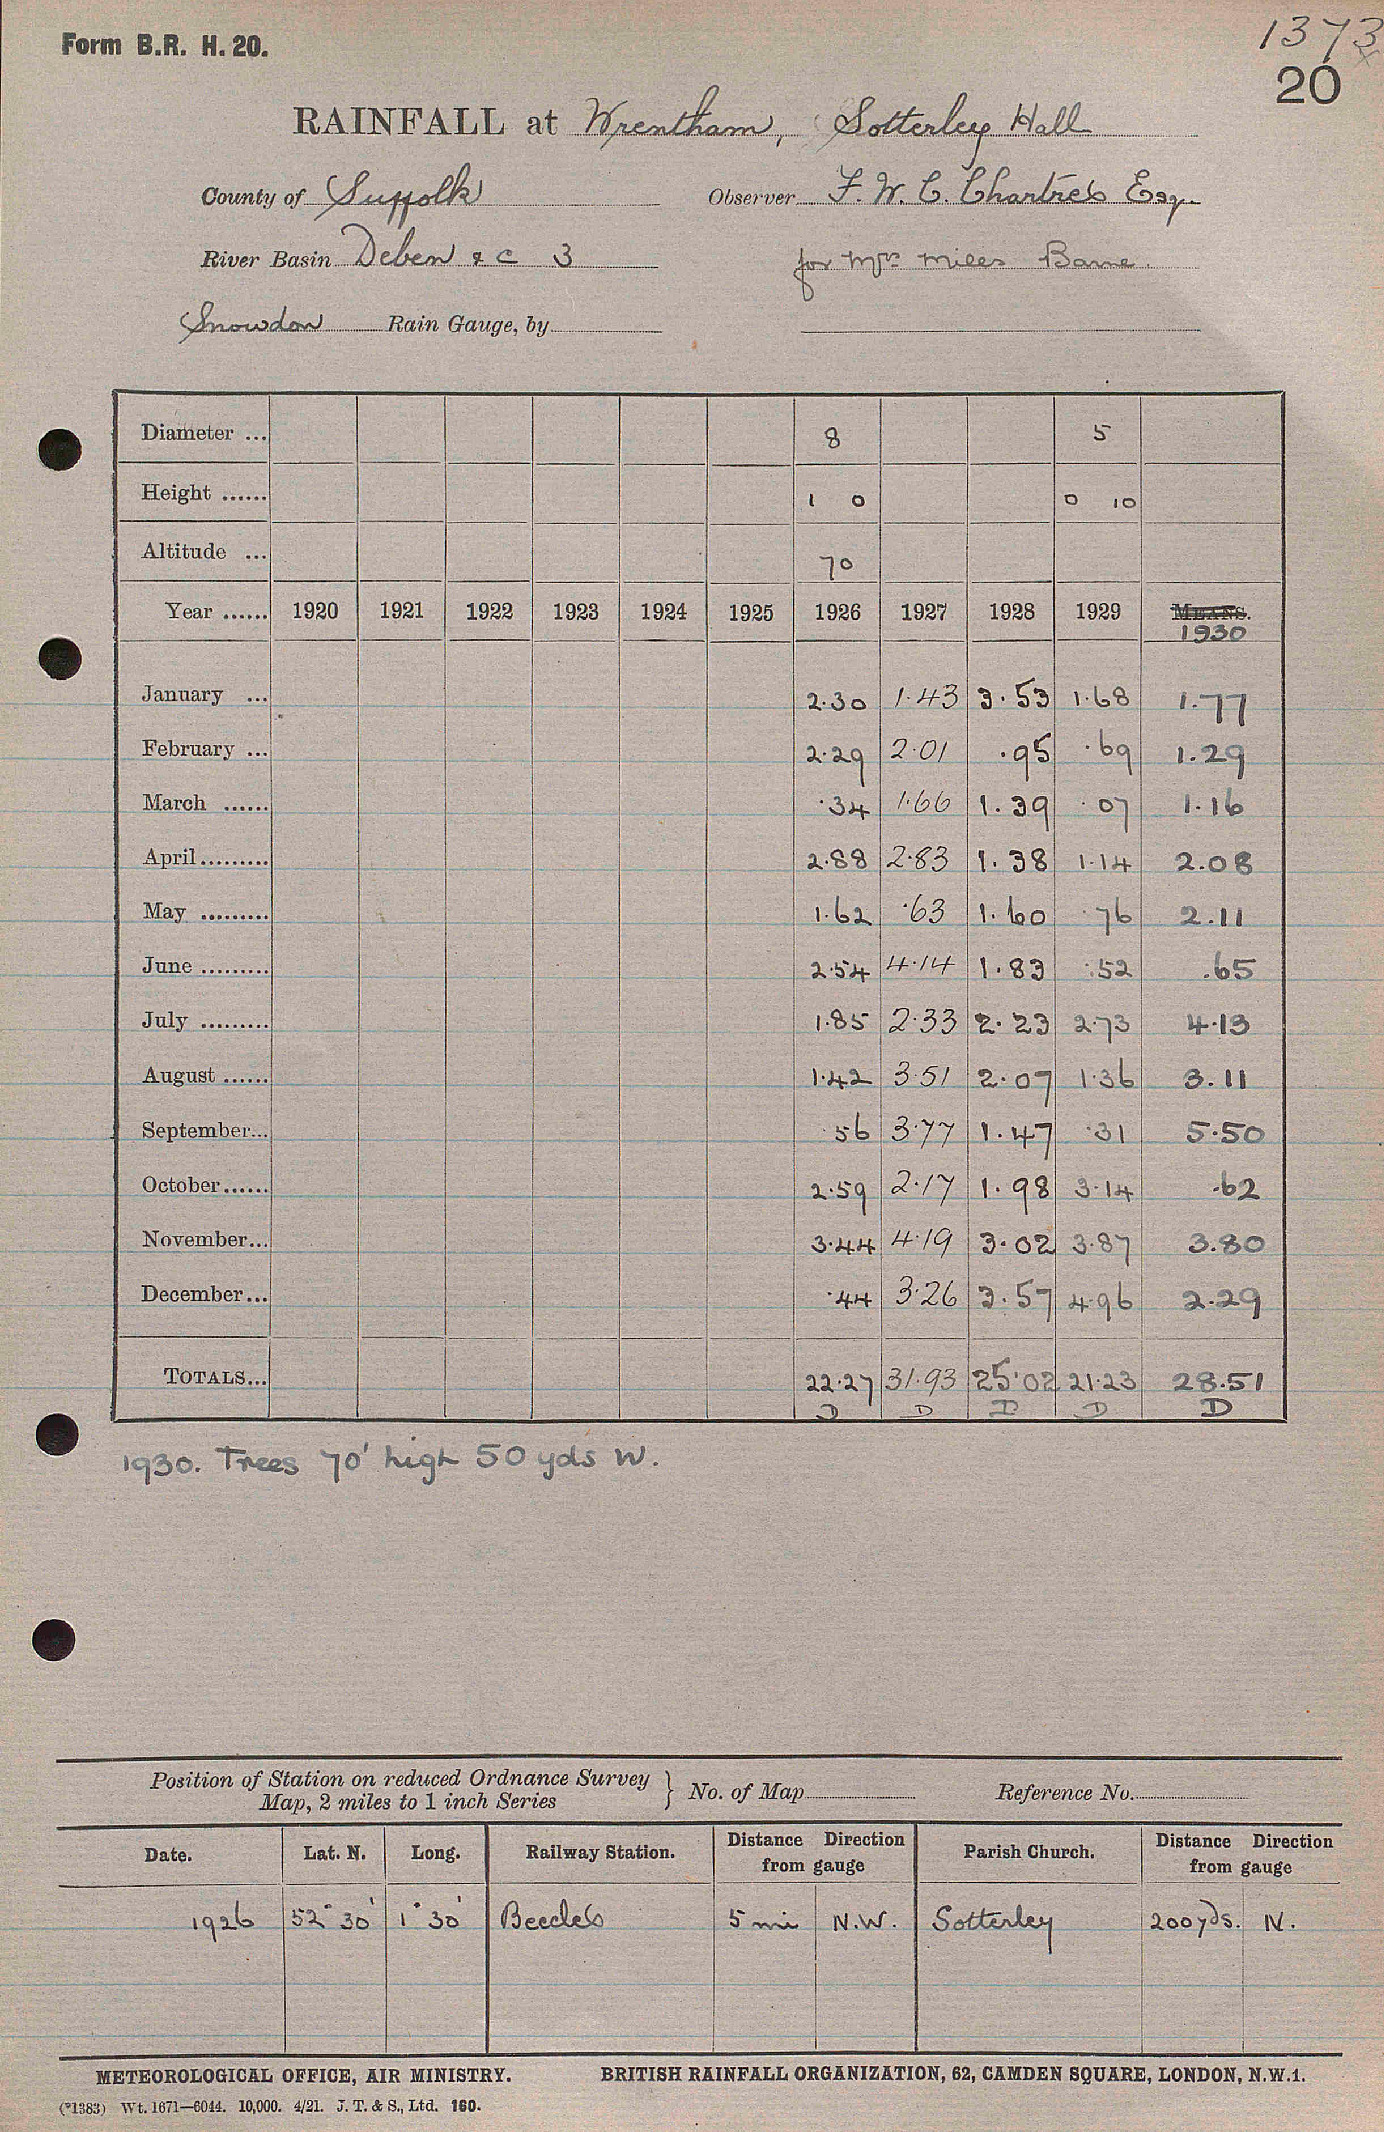 Form B.R. H. 20.
1373
20
RAINFALL at Wrentham, Sotterley Hall
County of Suffolk Observer F. W. C. Chartres Esq.
River Basin Deben & c 3 for Mrs Miles Barne.
Snowdon Rain Gauge, by
Diameter ... 8 5
Height ...... 1 0 0 10
Altitude ... 70
Year ...... 1920 1921 1922 1923 1924 1925 1926 1927 1928 1929 MEANS.
1930
January ... 2.30 1.43 3.53 1.68 1.77
February ... 2.29 2.01 .95 .69 1.29
March ...... .34 1.66 1.39 .07 1.16
April ......... 2.88 2.83 1.38 1.14 2.08
May ......... 1.62 .63 1.60 .76 2.11
June ......... 2.54 4.14 1.83 .52 .65
July ......... 1.85 2.33 2.23 2.73 4.13
August ...... 1.42 3.51 2.07 1.36 3.11
September... .56 3.77 1.47 .31 5.50
October...... 2.59 2.17 1.98 3.14 .62
November... 3.44 4.19 3.02 3.87 3.80
December... .44 3.26 3.57 4.96 2.29
TOTALS... 22.27 31.93 25.02 21.23 28.51
D D D D D
1930. Trees 70' high 50 yds W.
Position of Station on reduced Ordnance Survey Map, 2 miles to 1 inch Series } No. of Map Reference No.
Date. Lat. N. Long. Railway Station. Distance Direction from gauge Parish Church. Distance Direction from gauge
1926 52° 30' 1° 30' Beccles 5 mi N.W. Sotterley 200 yds. N.
METEOROLOGICAL OFFICE, AIR MINISTRY. BRITISH RAINFALL ORGANIZATION, 62, CAMDEN SQUARE, LONDON, N.W.1.
(*1383) Wt. 1671—6044. 10,000. 4/21. J. T. & S., Ltd. 160.